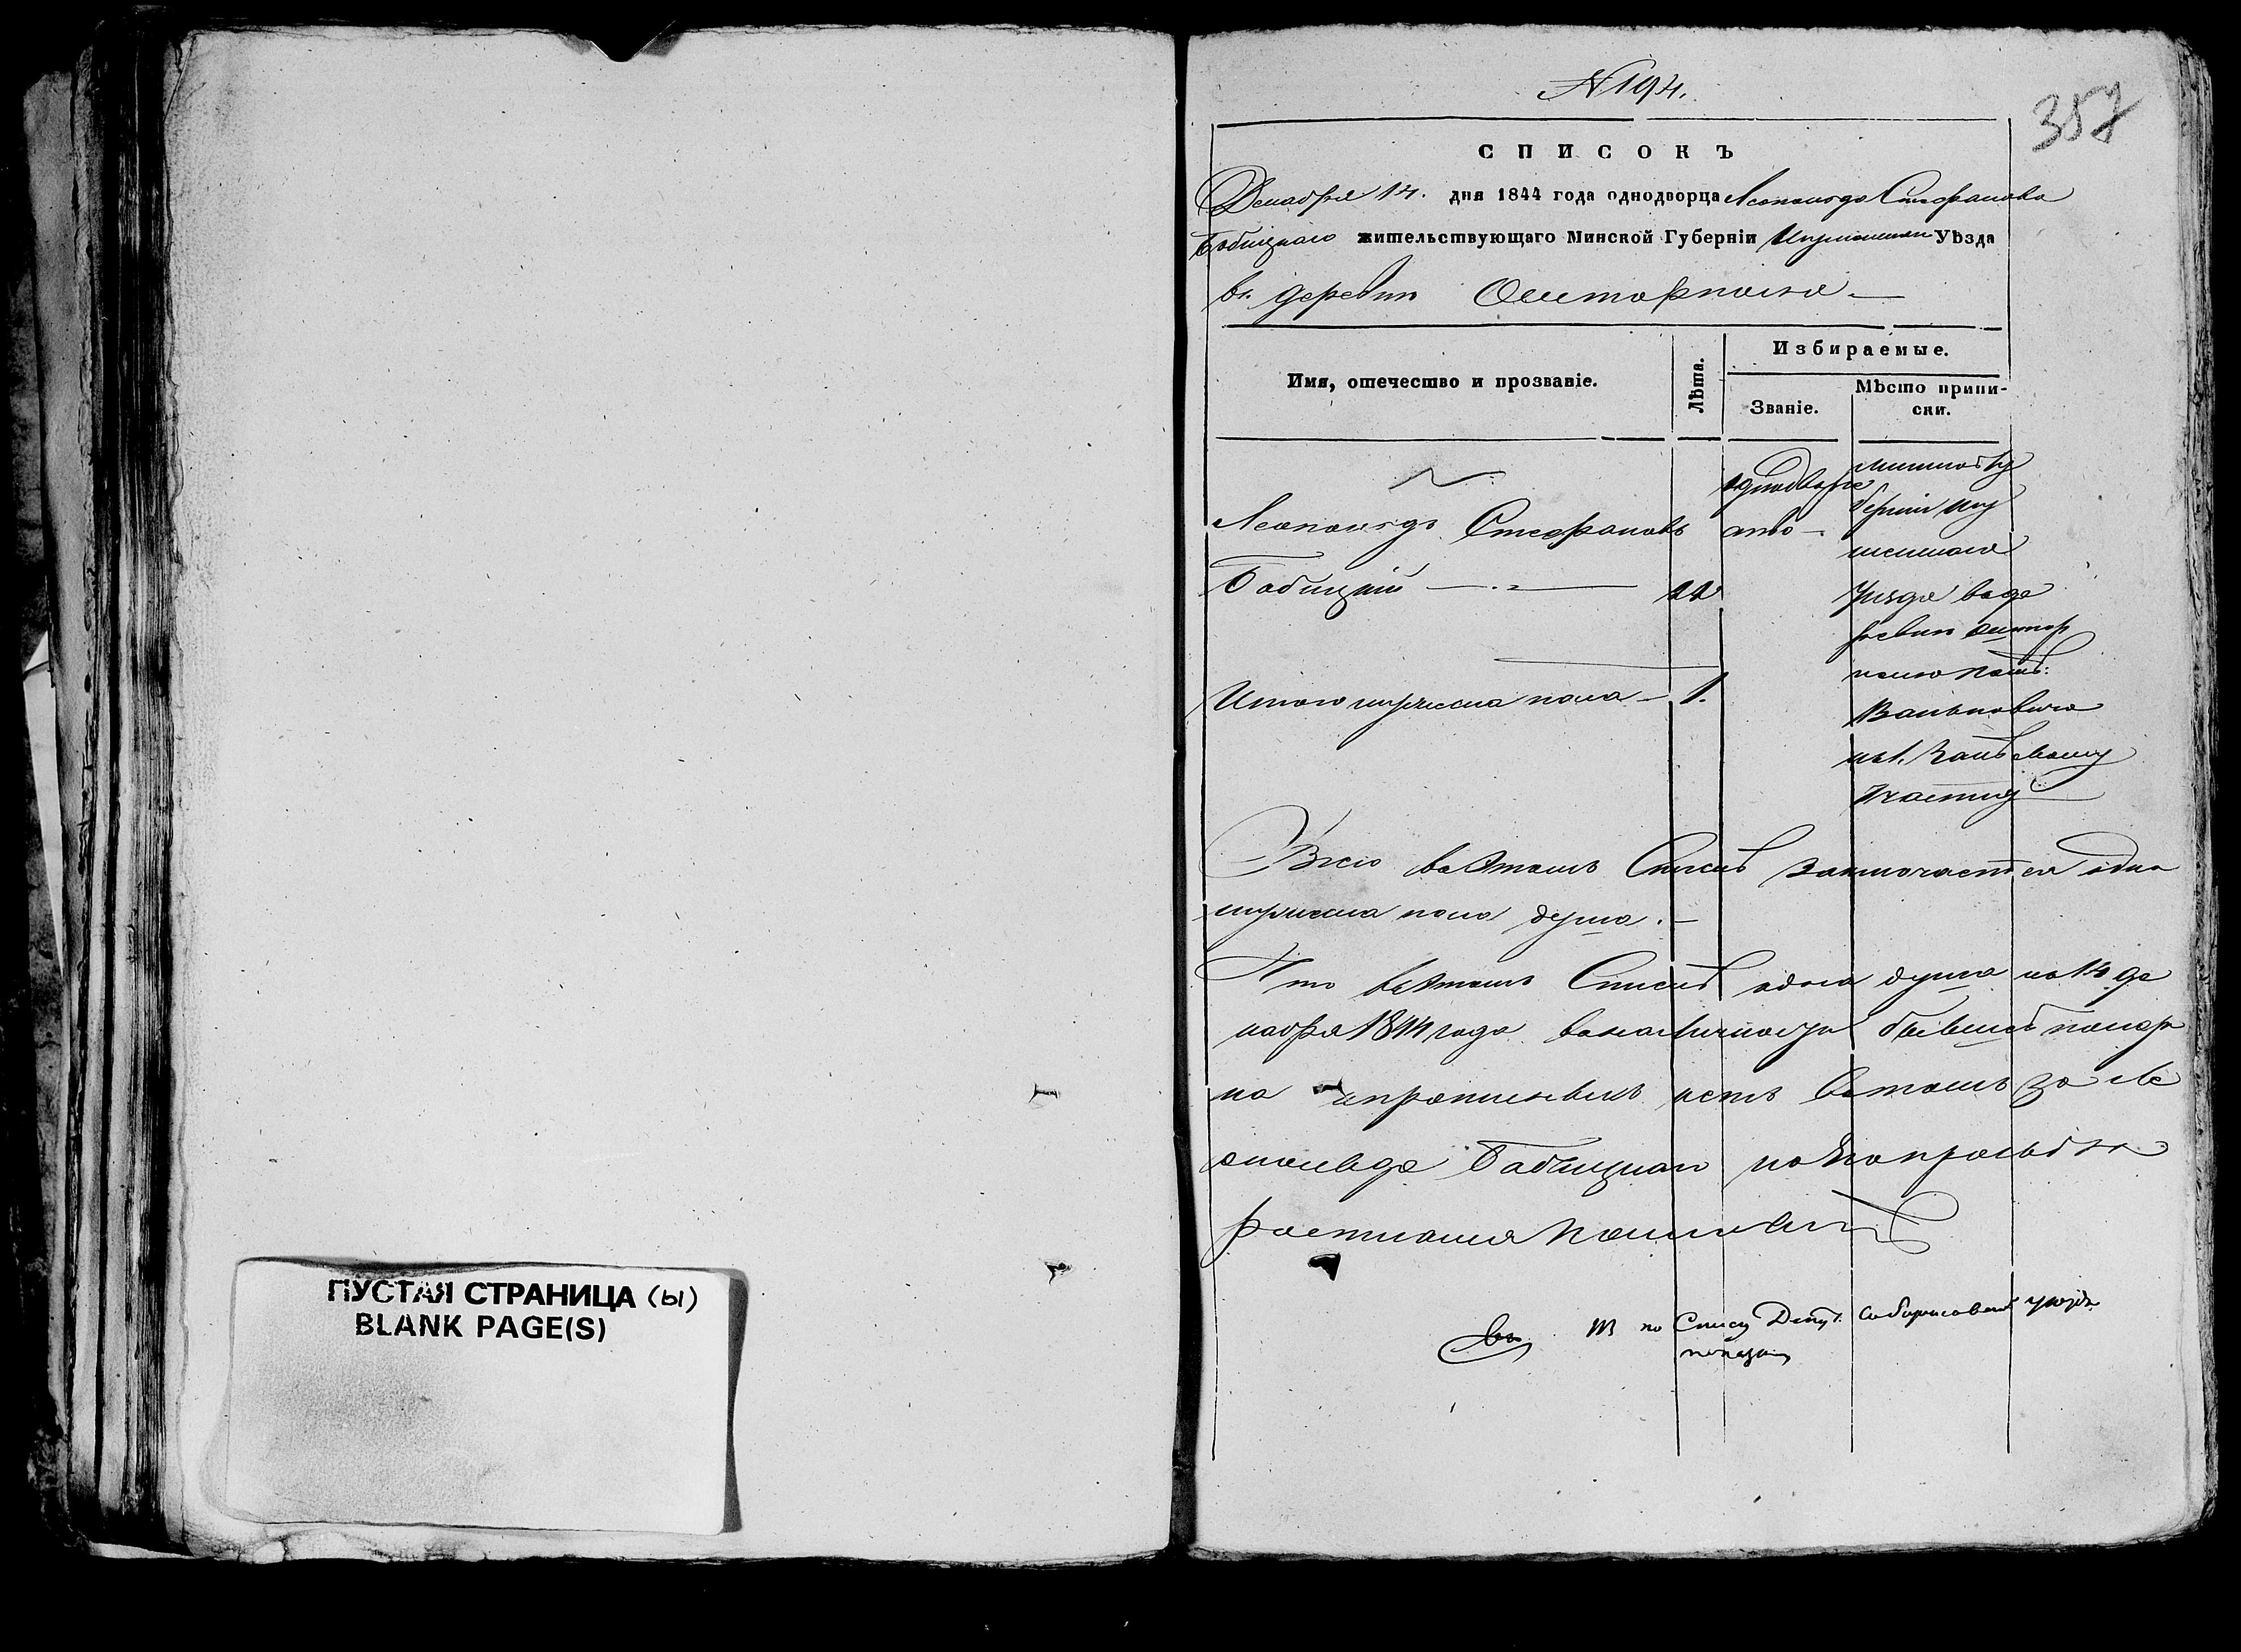 ПУСТАЯ СТРАНИЦА (Ы)
BLANK PAGE(S)
N 194.
357
СПИСОКЪ
Декабря 14. дня 1844 года однодворца Леопольда Стефанова
Бабицкаго жительствующаго Минской Губерніи Игуменскаго Уѣзда
въ деревни
Имя, отечество и прозваніе.
Лѣта.
Избираемые.
Званіе.
Мѣсто приписки.
Леопольдъ Стефановъ
Бабицкій
22
однодворче
ство
Минской Гу
берніи Игу
менскаго
уѣзда въ де
ревни
Ваньковича
участку
Итого мужеска пола 1.
Всего въ этомъ Спискѣ заключается одна
мужеска пола душа.
Что въ этомъ Спискѣ одна душа на 14 де
кабря 1844 года въ наличности
въ томъ за Ле
опольда Бабицкаго по его прозьбѣ
росписался
по Списку Депут.
показан